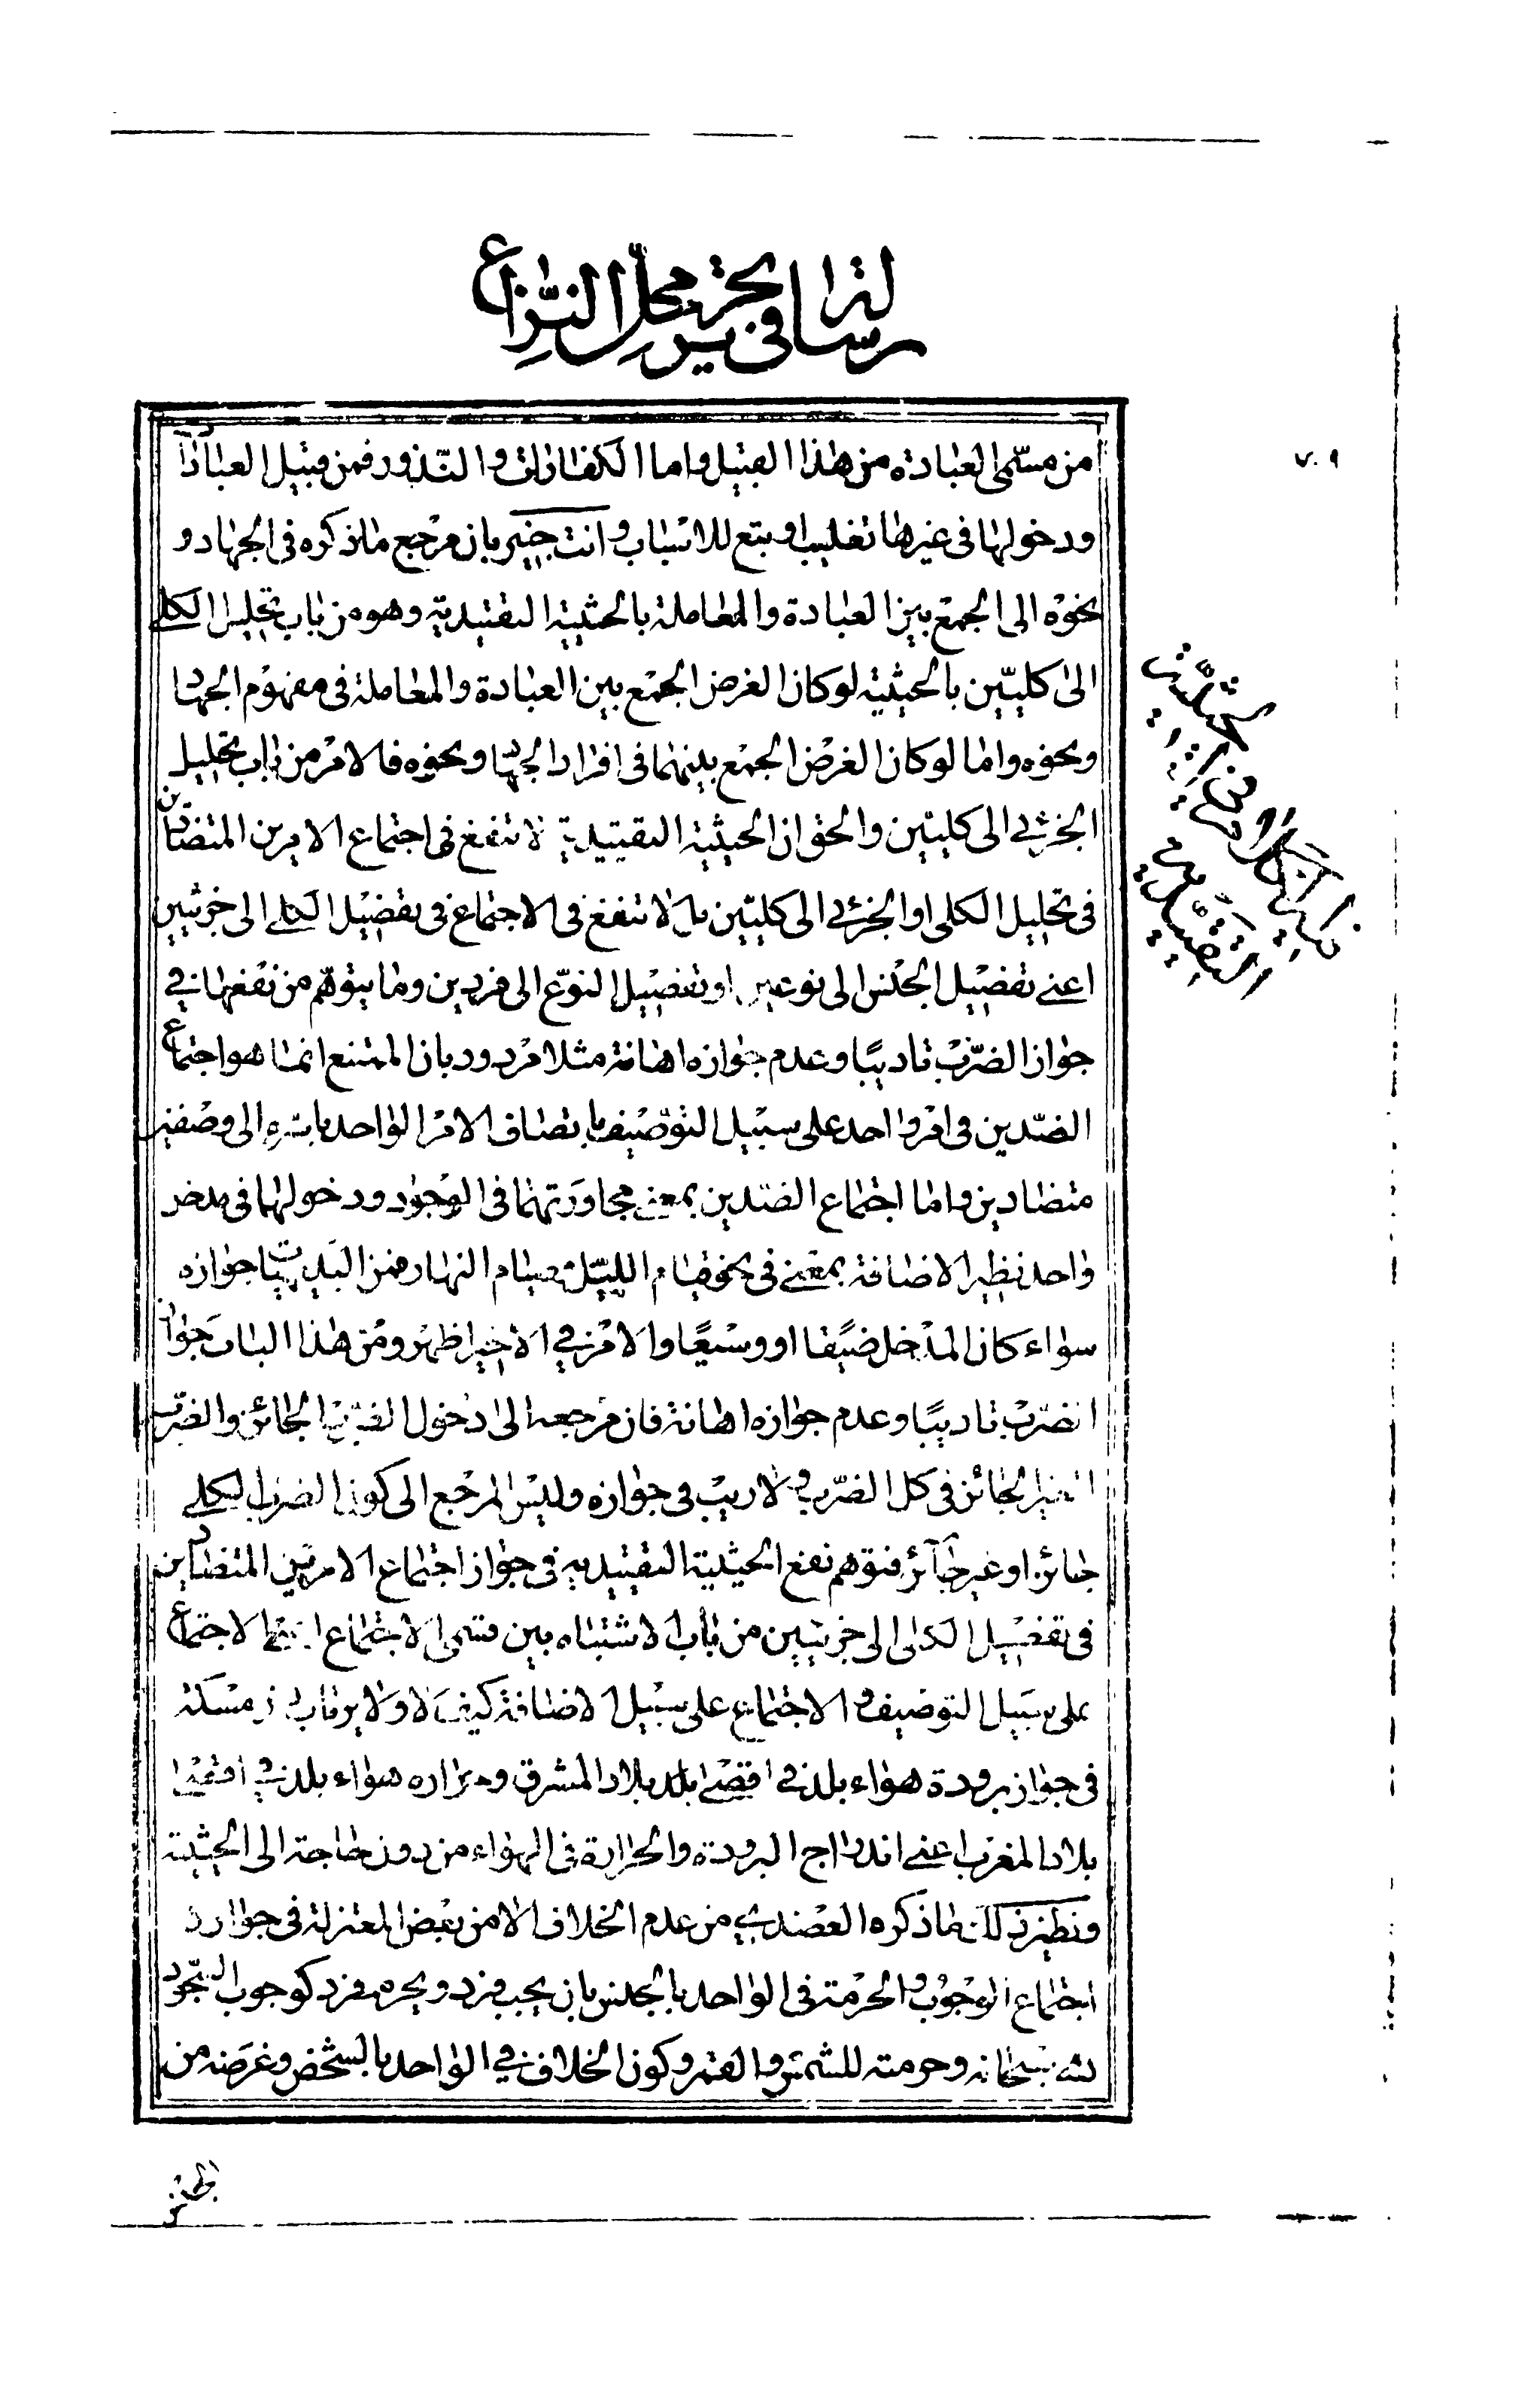 رسالة في تحرير محل النزاع
٧٠٩
من مسمى العبادة من هذا القبيل واما الكفارات والنذور فمن قبيل العبادات
ودخولها في غيرها تغليب او بتبع للاسباب وانت خبير بان مرجع ما ذكره في الجهاد و
نحوه الى الجمع بين العبادة والمعاملة بالحيثية التقييدية وهو من باب تحليل الكلي
الى كليين بالحيثية لو كان الغرض الجمع بين العبادة والمعاملة في مفهوم الجهاد
ونحوه واما لو كان الغرض الجمع بينهما في افراد الجهاد ونحوه فالامر من باب تحليل
الجزئي الى كليين والحق ان الحيثية التقييدية لا تنفع في اجتماع الامرين المتضادين
في تحليل الكلي او الجزئي الى كليين بل لا تنفع في الاجتماع في تفصيل الكلي الى جزئيين
اعني تفصيل الجنس الى نوعين او تفصيل النوع الى فردين وما يتوهم من نفعها في
جواز الضرب تاديبًا وعدم جوازه اهانة مثلا مردود بان الممتنع انما هو اجتماع
الضدين في امر واحد على سبيل التوصيف باتصاف الامر الواحد باسره الى وصفين
متضادين واما اجتماع الضدين بمعنى مجاورتهما في الوجود ودخولهما في مدخر
واحد نظير الاضافة بمعنى في نحو قيام الليل وصيام النهار فمن البديهيات جوازه
سواء كان المدخل ضيقا او وسيعًا والامر في الاخير اظهر ومن هذا الباب جواز
الضرب تاديبًا وعدم جوازه اهانة فان مرجعه الى دخول الضرب الجائز والضرب
الغير الجائز في كل الضرب ولا ريب في جوازه وليس المرجع الى كون الضرب الكلي
جائز او غير جائز فتوهم نفع الحيثية التقييديه في جواز اجتماع الامرين المتضادين
في تفصيل الكلي الى جزئيين من باب الاشتباه بين قسمي الاجتماع الاجتماع
على سبيل التوصيف والاجتماع على سبيل الاضافة كيف لا ولا يرتاب ذو مسكة
في جواز برودة هواء بلد في اقصى بلد بلاد المشرق وحرارة هواء بلد في اقصى
بلاد المغرب اعني اندراج البرودة والحرارة في الهواء من دون حاجة الى الحيثية
ونظير ذلك ما ذكره العضدي من عدم الخلاف الا من بعض المعتزلة في جواز
اجتماع الوجوب والحرمة في الواحد بالجنس بان يجب فرد ويحرم فرد كوجوب السجود
لله سبحانه وحرمته للشمس والقمر وكون الخلاف في الواحد بالشخص وغرضه من